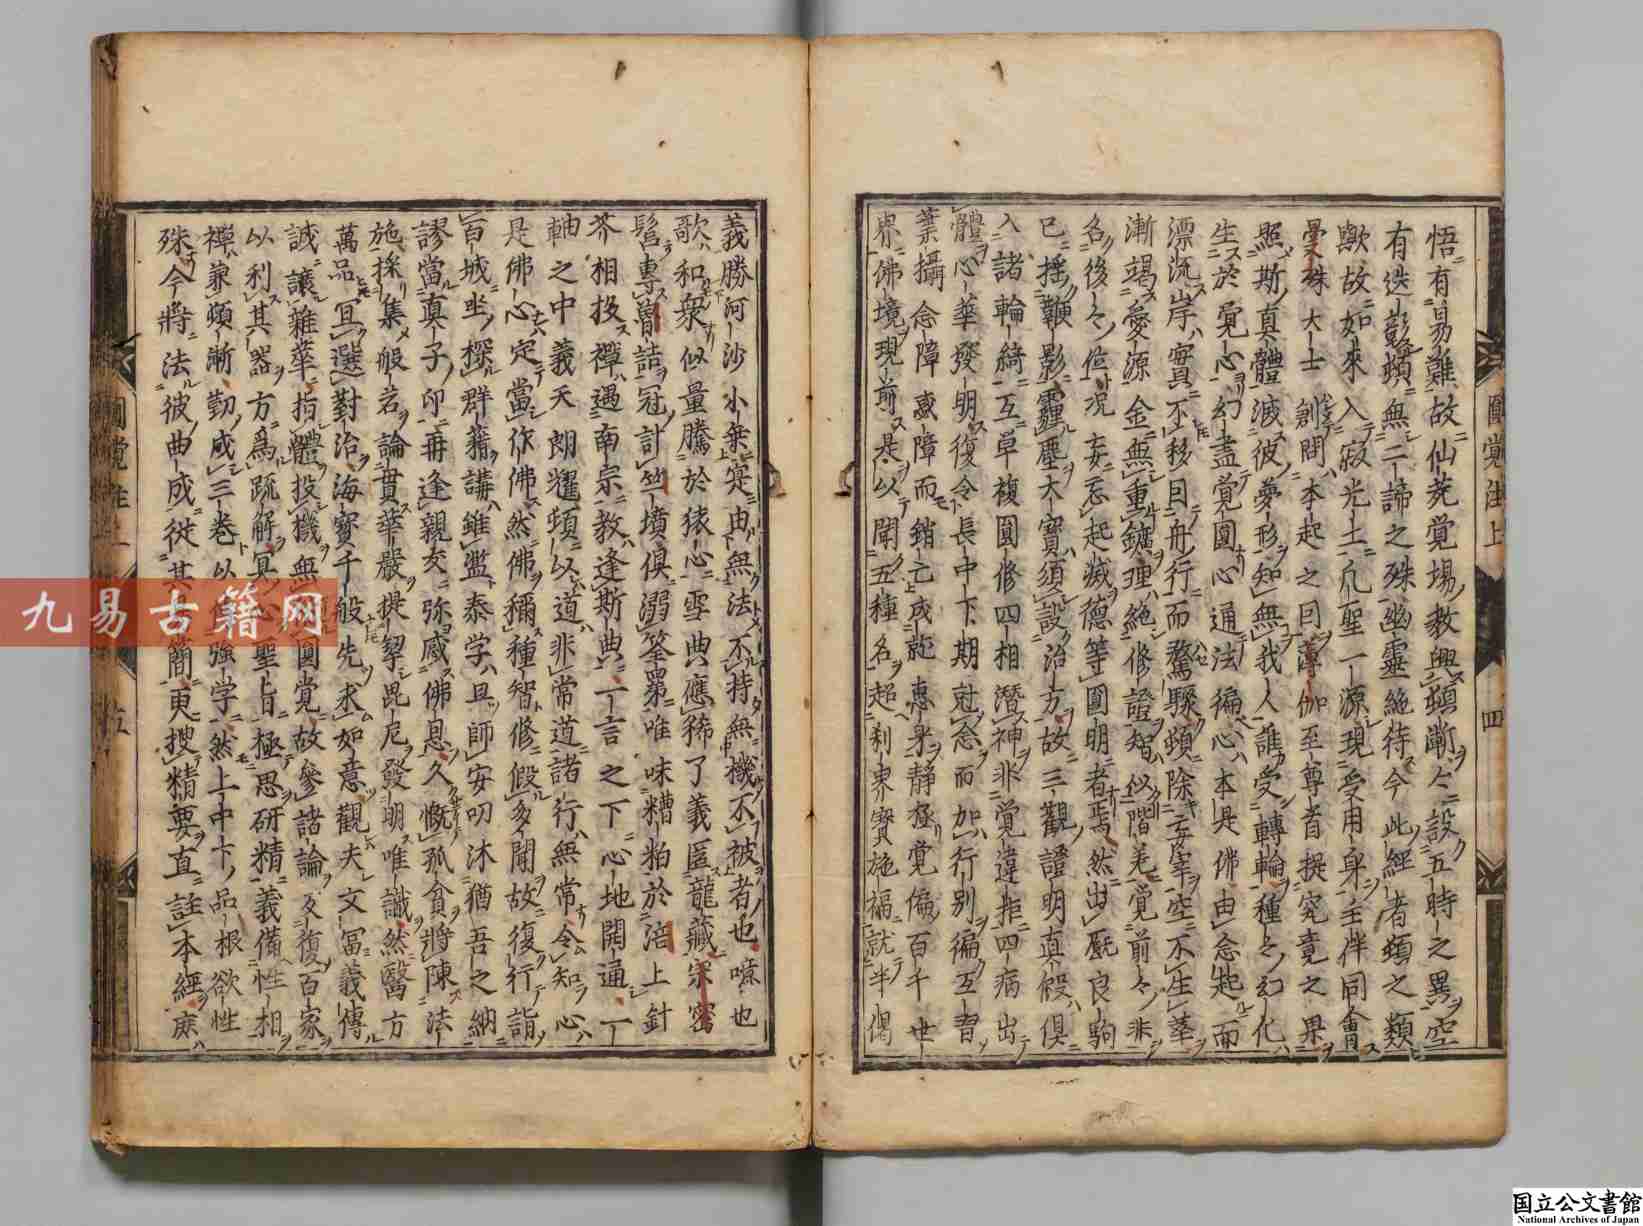 悟有易難故仙苑覚場教興頓漸々設五時之異空
有迭彰頓無二諦之殊幽靈絶待今此經者頓之類
歟故如來入寂光土凡聖一源現受用身主伴同會
曼殊大士創問本起之因薄伽至尊首提究竟之果
照斯真體滅彼夢形知無我人誰受轉輪種々幻化
生於覚心幻盡覚圓心通法徧心本是佛由念起而
漂沉岸實不移因舟行而騖驟頓除妄宰空不生華
漸竭愛源金無重鑛理絶修證智似階差覚前々非
名後々位況妄忘起滅德等圓明者焉然出厩良駒
已揺鞭影霾塵大寶須設治方故三觀證明真假俱
入諸輪綺互単複圓修四相潜神非覚違拒四病出
體心華發明復令長中下期尅念而加行別徧互習
業攝念障惑障而銷亡成就惠身靜極覚徧百千世
界佛境現前是以聞五種名超刹界寶施福說半偈
圓覚注上
四
義勝河沙小乗寔由無法不持無機不被者也噫也
歌和衆似量騰於猿心雪典應稀了義匿龍藏宗密
髫專魯誥冠討竺墳俱溺筌第唯味糟粕於涪上針
芥相投禪遇南宗教逢斯典一言之下心地開通一
軸之中義天朗耀頓以道非常道諸行無常令知心
是佛心定當作佛然佛稱種智修假多聞故復行詣
百城坐探群籍講雖濫泰学且師安叨沐猶吾之納
謬當真子印再逢親交弥感佛恩久慨孤貧將陳法
施採集般若論貫華嚴提挈毘尼發明唯識然醫方
萬品冝選對治海寶千般先求如意觀夫文冨義博
誠讓雜華指體投機無圓覚故參諸論反復百家
以利其器方爲疏解冥心聖旨極思研精義備性相
禪兼頓漸勒成三巻以傳強学然上中下品根欲性
殊今將法彼曲成從其易簡更搜精要直註本經庶
圓覚注上
五
九易古籍网
国立公文書館
National Archives of Japan